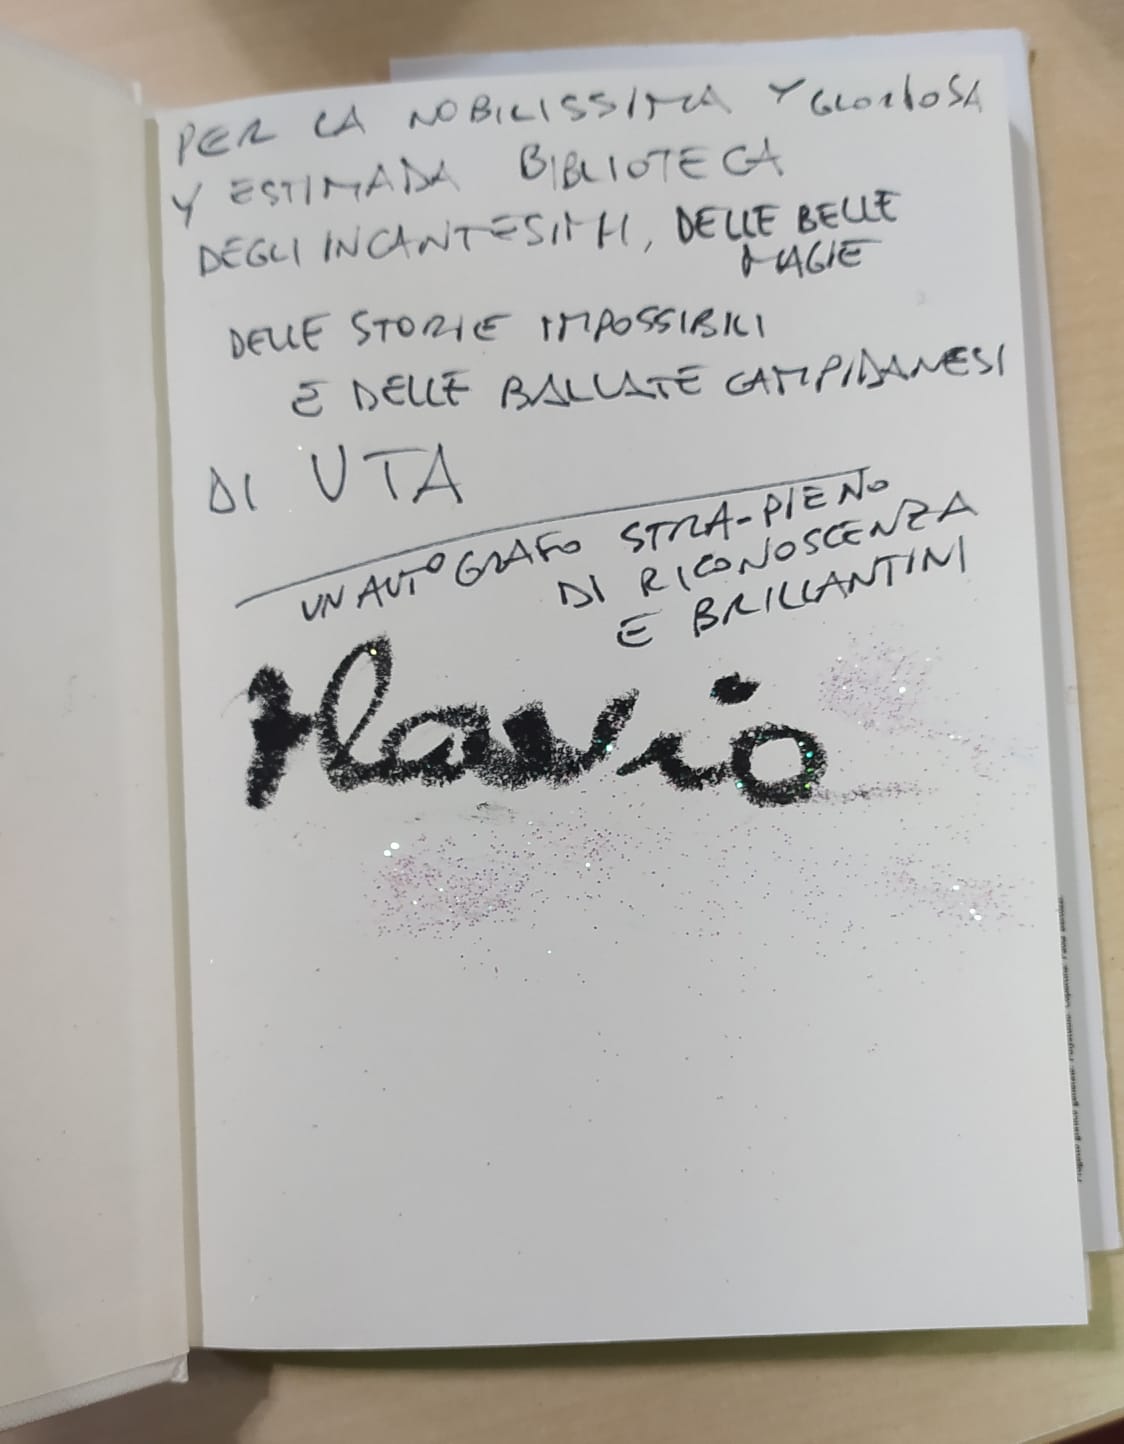 PER LA NOBILISSIMA Y GLORIOSA
Y ESTIMADA BIBLIOTECA
DEGLI INCANTESIMI, DELLE BELLE
MAGIE
DELLE STORIE IMPOSSIBILI
E DELLE BALLATE CAMPIDANESI
DI UTA
UN AUTOGRAFO STRA-PIENO
DI RICONOSCENZA
E BRILLANTINI
Flavio